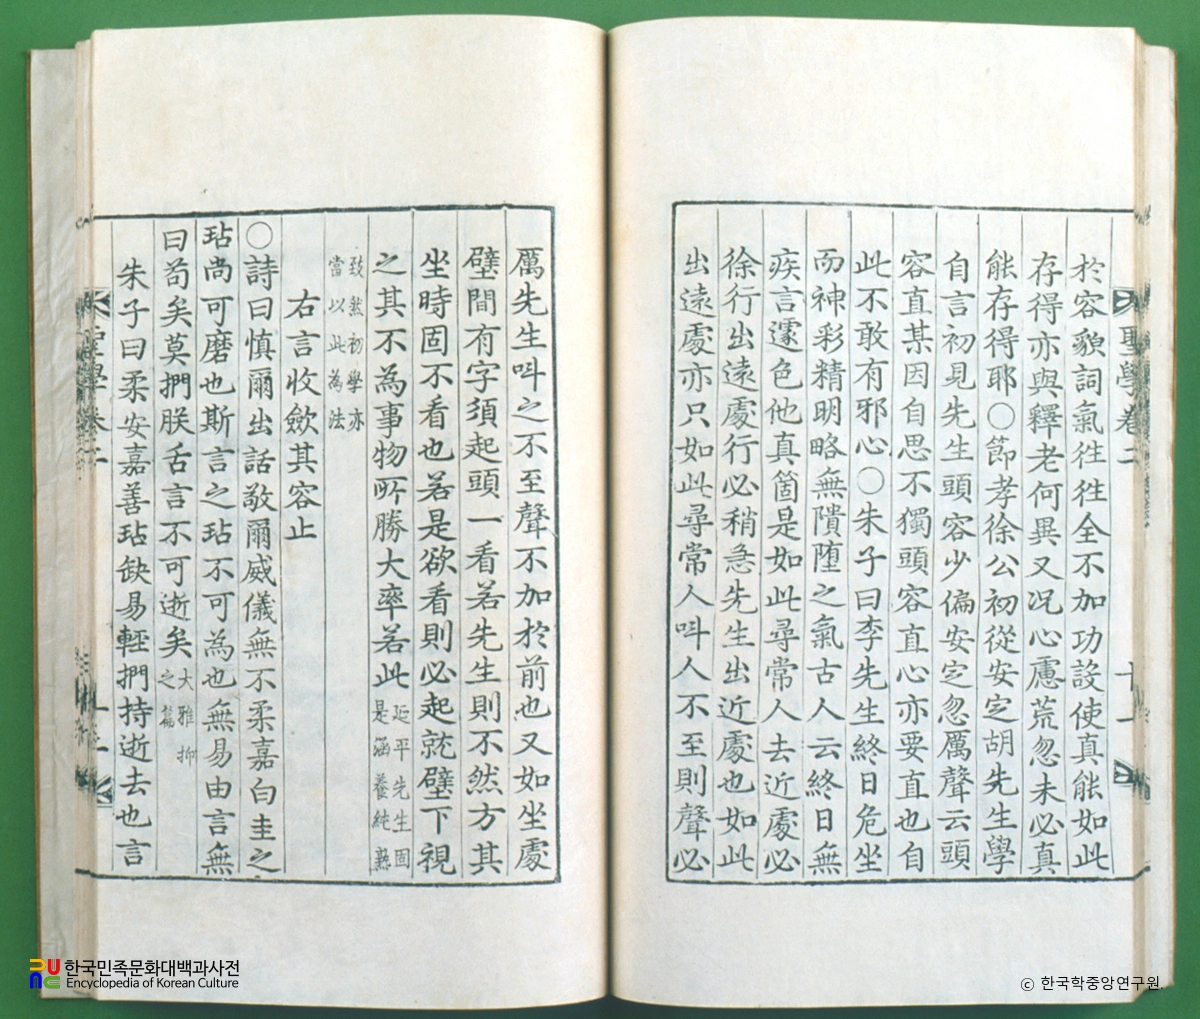 聖學卷二
十一
於容貌詞氣徃徃全不加功設使真能如此
存得亦與釋老何異又况心慮荒忽未必真
能存得耶○節孝徐公初從安定胡先生學
自言初見先生頭容少偏安定忽厲聲云頭
容直某因自思不獨頭容直心亦要直也自
此不敢有邪心○朱子曰李先生終日危坐
而神彩精明略無隤墮之氣古人云終日無
疾言遽色他真箇是如此尋常人去近處必
徐行出遠處行必稍急先生出近處也如此
出遠處亦只如此尋常人叫人不至則聲必
厲先生叫之不至聲不加於前也又如坐處
壁間有字須起頭一看若先生則不然方其
坐時固不看也若是欲看則必起就壁下視
之其不為事物所勝大率若此延平先生固是涵養純熟
致然初學亦當以此為法
右言收斂其容止
○詩曰慎爾出話敬爾威儀無不柔嘉白圭之
玷尚可磨也斯言之玷不可為也無易由言無
曰苟矣莫捫朕舌言不可逝矣大雅抑之篇
朱子曰柔安嘉善玷缺易輕捫持逝去也言
한국민족문화대백과사전
Encyclopedia of Korean Culture
ⓒ 한국학중앙연구원.